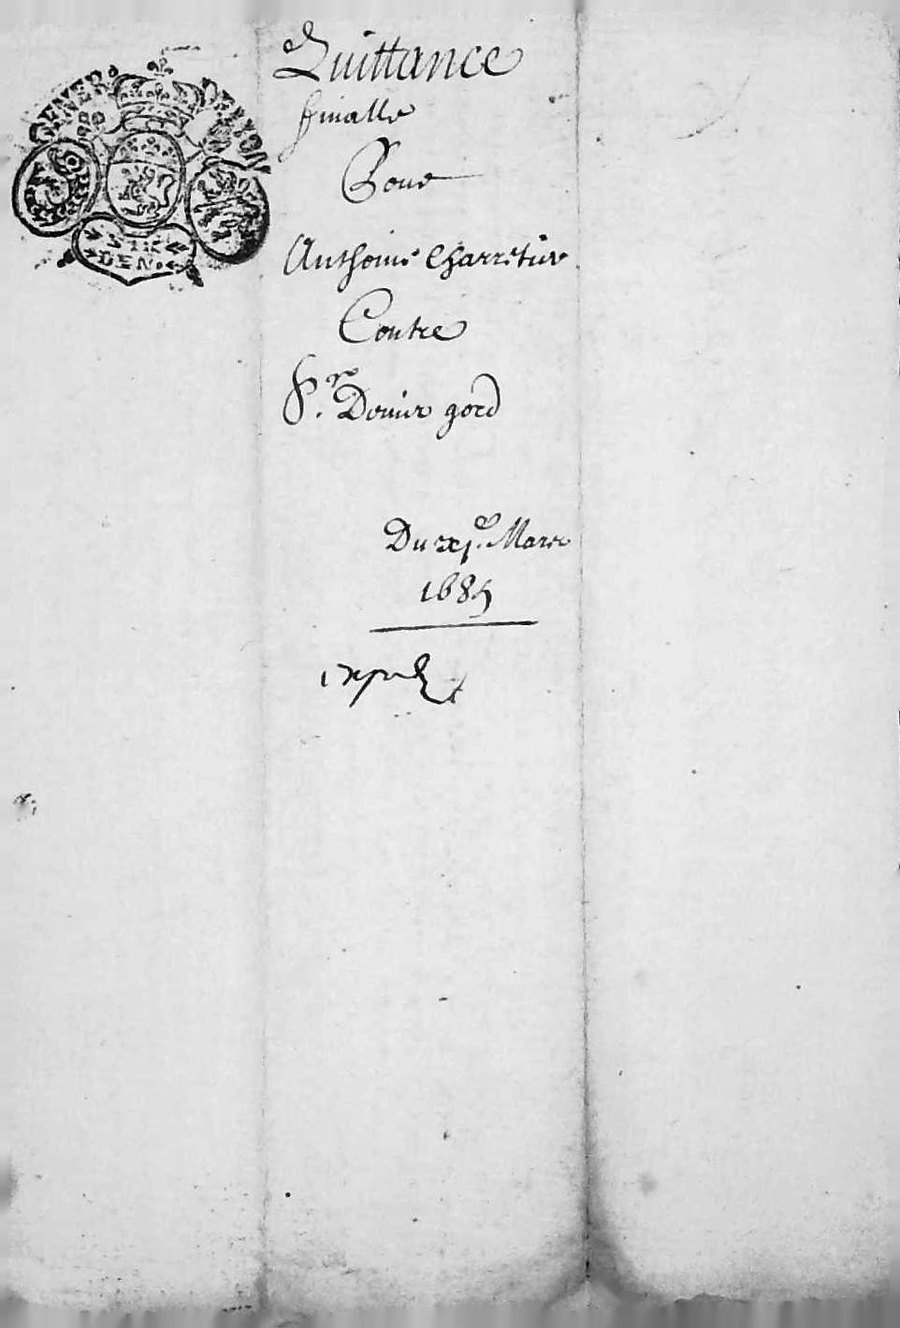 GENER. DE LYON
SIX
DEN.
Quittance
finalle
Pour
Anthoine Charretier
Contre
Sr. Denis gord
Du xje. Mars
1685